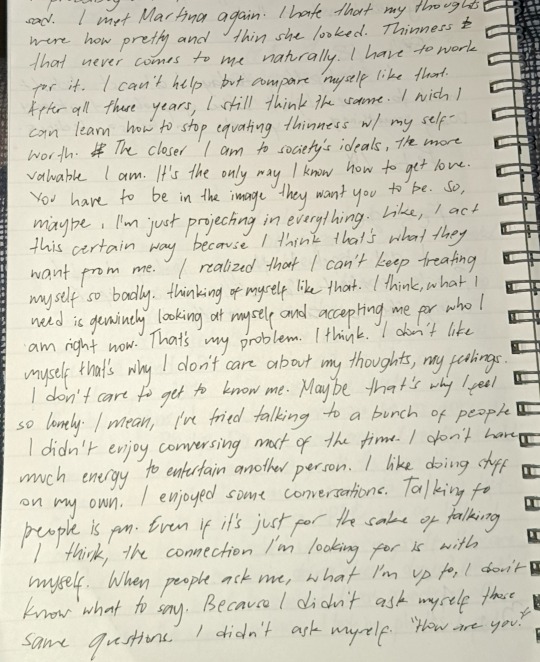 sad. I met Martina again. I hate that my thoughts
were how pretty and thin she looked. Thinness
that never comes to me naturally. I have to work
for it. I can't help but compare myself like that.
After all these years, I still think the same. I wish I
can learn how to stop equating thinness w/ my self-
worth. The closer I am to society's ideals, the more
valuable I am. It's the only way I know how to get love.
You have to be in the image they want you to be. So,
maybe, I'm just projecting in everything. Like, I act
this certain way because I think that's what they
want from me. I realized that I can't keep treating
myself so badly. thinking of myself like that. I think, what I
need is genuinely looking at myself and accepting me for who I
am right now. That's my problem. I think. I don't like
myself that's why I don't care about my thoughts, my feelings.
I don't care to get to know me. Maybe that's why I feel
so lonely. I mean, I've tried talking to a bunch of people
I didn't enjoy conversing most of the time. I don't have
much energy to entertain another person. I like doing stuff
on my own. I enjoyed some conversations. Talking to
people is fun. Even if it's just for the sake of talking
I think, the connection I'm looking for is with
myself. When people ask me, what I'm up to, I don't
know what to say. Because I didn't ask myself those
same questions. I didn't ask myself. "How are you?"